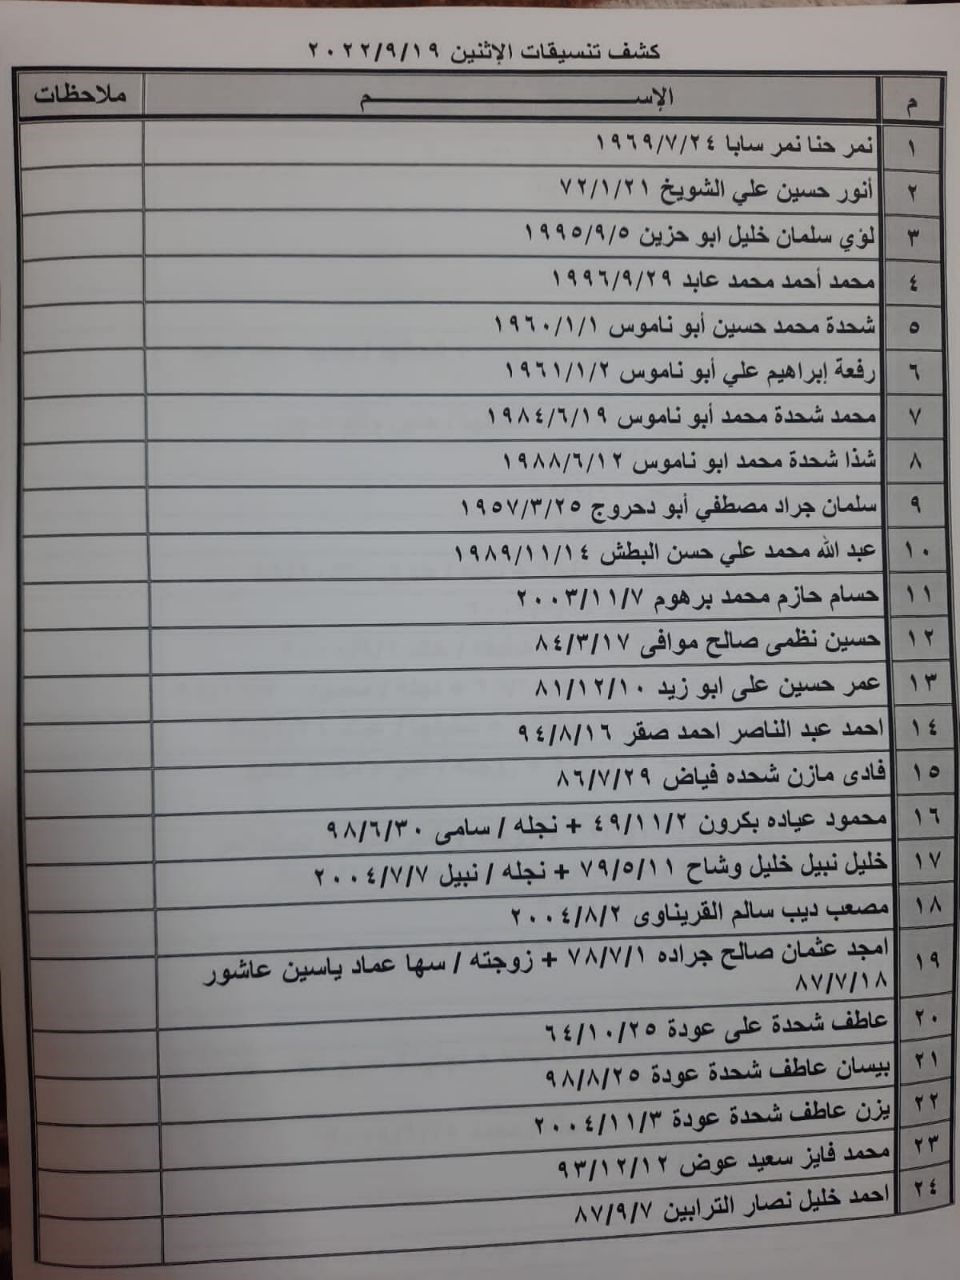 كشف تنسيقات الإثنين ٢٠٢٢/٩/١٩
م الإســـــــــم ملاحظات
١ نمر حنا نمر سابا ١٩٦٩/٧/٢٤
٢ أنور حسين علي الشويخ ٧٢/١/٢١
٣ لؤي سلمان خليل ابو حزين ١٩٩٥/٩/٥
٤ محمد أحمد محمد عابد ١٩٩٦/٩/٢٩
٥ شحدة محمد حسين أبو ناموس ١٩٦٠/١/١
٦ رفعة إبراهيم علي أبو ناموس ١٩٦١/١/٢
٧ محمد شحدة محمد أبو ناموس ١٩٨٤/٦/١٩
٨ شذا شحدة محمد ابو ناموس ١٩٨٨/٦/١٢
٩ سلمان جراد مصطفي أبو دحروج ١٩٥٧/٣/٢٥
١٠ عبد الله محمد علي حسن البطش ١٩٨٩/١١/١٤
١١ حسام حازم محمد برهوم ٢٠٠٣/١١/٧
١٢ حسين نظمى صالح موافى ٨٤/٣/١٧
١٣ عمر حسين على ابو زيد ٨١/١٢/١٠
١٤ احمد عبد الناصر احمد صقر ٩٤/٨/١٦
١٥ فادى مازن شحده فياض ٨٦/٧/٢٩
١٦ محمود عياده بكرون ٤٩/١١/٢ + نجله / سامى ٩٨/٦/٣٠
١٧ خليل نبيل خليل وشاح ٧٩/٥/١١ + نجله / نبيل ٢٠٠٤/٧/٧
١٨ مصعب ديب سالم القريناوى ٢٠٠٤/٨/٢
١٩ امجد عثمان صالح جراده ٧٨/٧/١ + زوجته / سها عماد ياسين عاشور
٨٧/٧/١٨
٢٠ عاطف شحدة على عودة ٦٤/١٠/٢٥
٢١ بيسان عاطف شحدة عودة ٩٨/٨/٢٥
٢٢ يزن عاطف شحدة عودة ٢٠٠٤/١١/٣
٢٣ محمد فايز سعيد عوض ٩٣/١٢/١٢
٢٤ احمد خليل نصار الترابين ٨٧/٩/٧